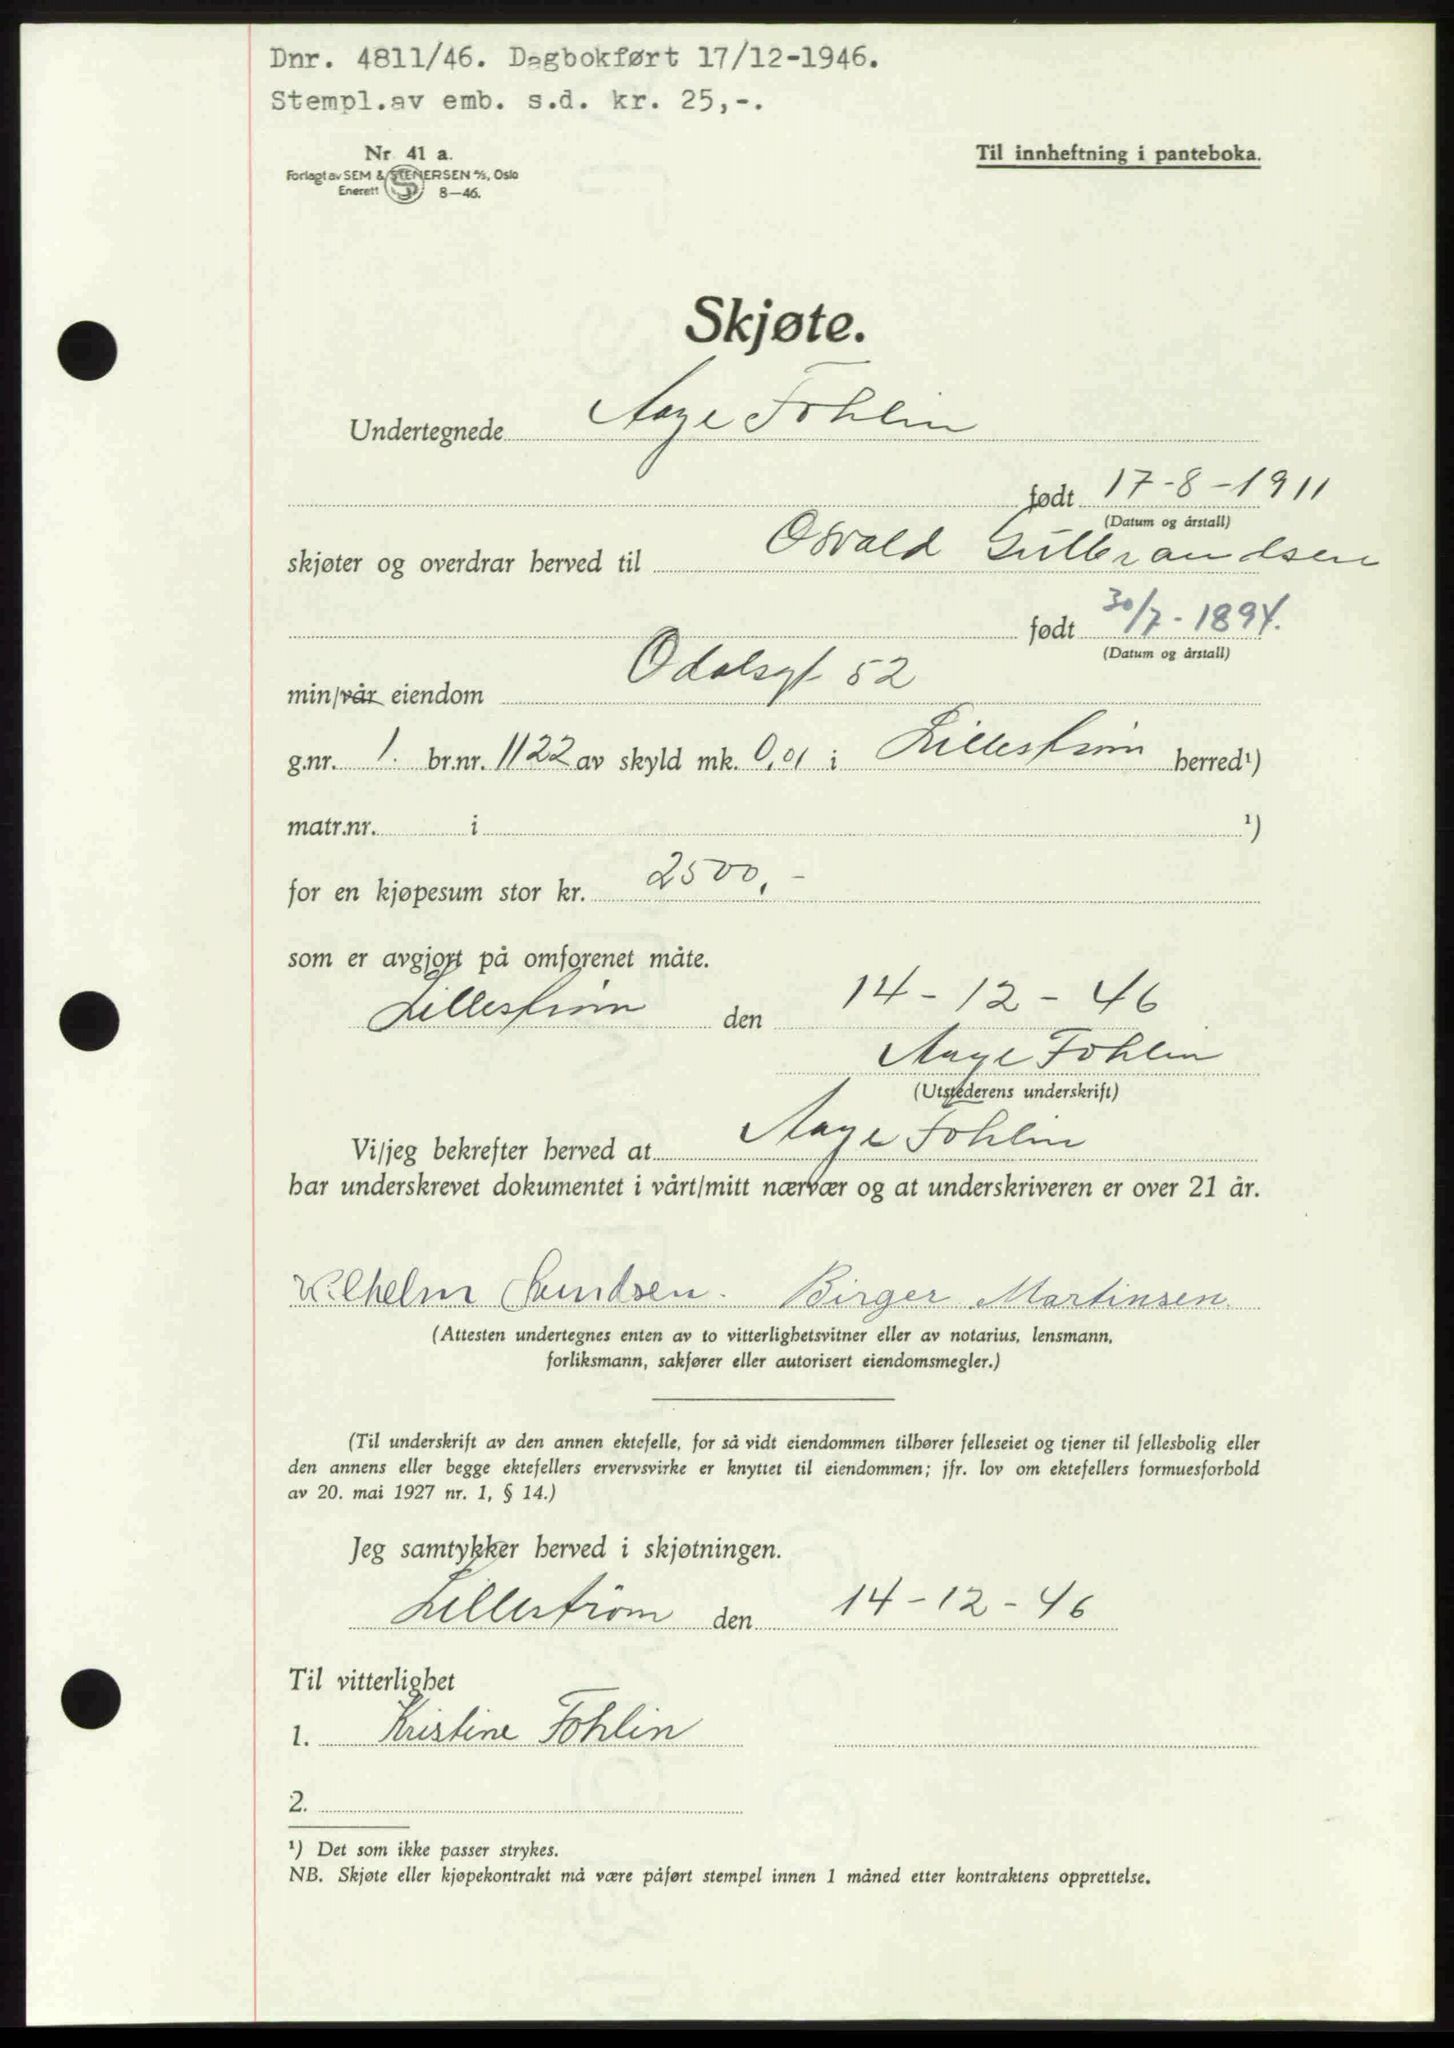 Dnr. 4811/46. Dagbokført 17/12-1946.
Stempl.av emb. s.d. kr. 25,-.
Nr. 41 a.
Til innheftning i panteboka.
Forlagt av SEM & STENERSEN A/S, Oslo
Enerett 8—46.
Skjøte.
Undertegnede Aage Fohlin
født 17-8-1911
(Datum og årstall)
skjøter og overdrar herved til Osvald Gulbrandsen
født 30/7-1894.
(Datum og årstall)
min/vår eiendom Odalsgt 52
g.nr. 1. br.nr. 1122 av skyld mk. 0,01 i Lillestrøm herred¹)
matr.nr. i ¹)
for en kjøpesum stor kr. 2500,-
som er avgjort på omforenet måte.
Lillestrøm den 14-12-46
Aage Fohlin
(Utstederens underskrift)
Vi/jeg bekrefter herved at Aage Fohlin
har underskrevet dokumentet i vårt/mitt nærvær og at underskriveren er over 21 år.
Wilhelm Svendsen. Birger Martinsen.
(Attesten undertegnes enten av to vitterlighetsvitner eller av notarius, lensmann,
forliksmann, sakfører eller autorisert eiendomsmegler.)
(Til underskrift av den annen ektefelle, for så vidt eiendommen tilhører felleseiet og tjener til fellesbolig eller
den annens eller begge ektefellers ervervsvirke er knyttet til eiendommen; jfr. lov om ektefellers formuesforhold
av 20. mai 1927 nr. 1, § 14.)
Jeg samtykker herved i skjøtningen.
Lillestrøm den 14-12-46
Til vitterlighet
1. Kristine Fohlin
2.
¹) Det som ikke passer strykes.
NB. Skjøte eller kjøpekontrakt må være påført stempel innen 1 måned etter kontraktens opprettelse.